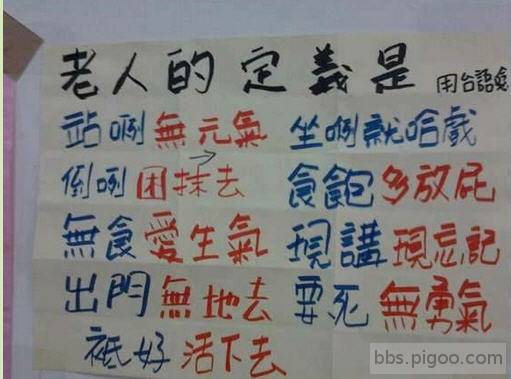 老人的定義是 用台語唸
站咧無元氣 坐咧就哈戲
倒咧困抹去 食飽多放屁
無食愛生氣 現講現忘記
出門無地去 要死無勇氣
祗好活下去
bbs.pigoo.com